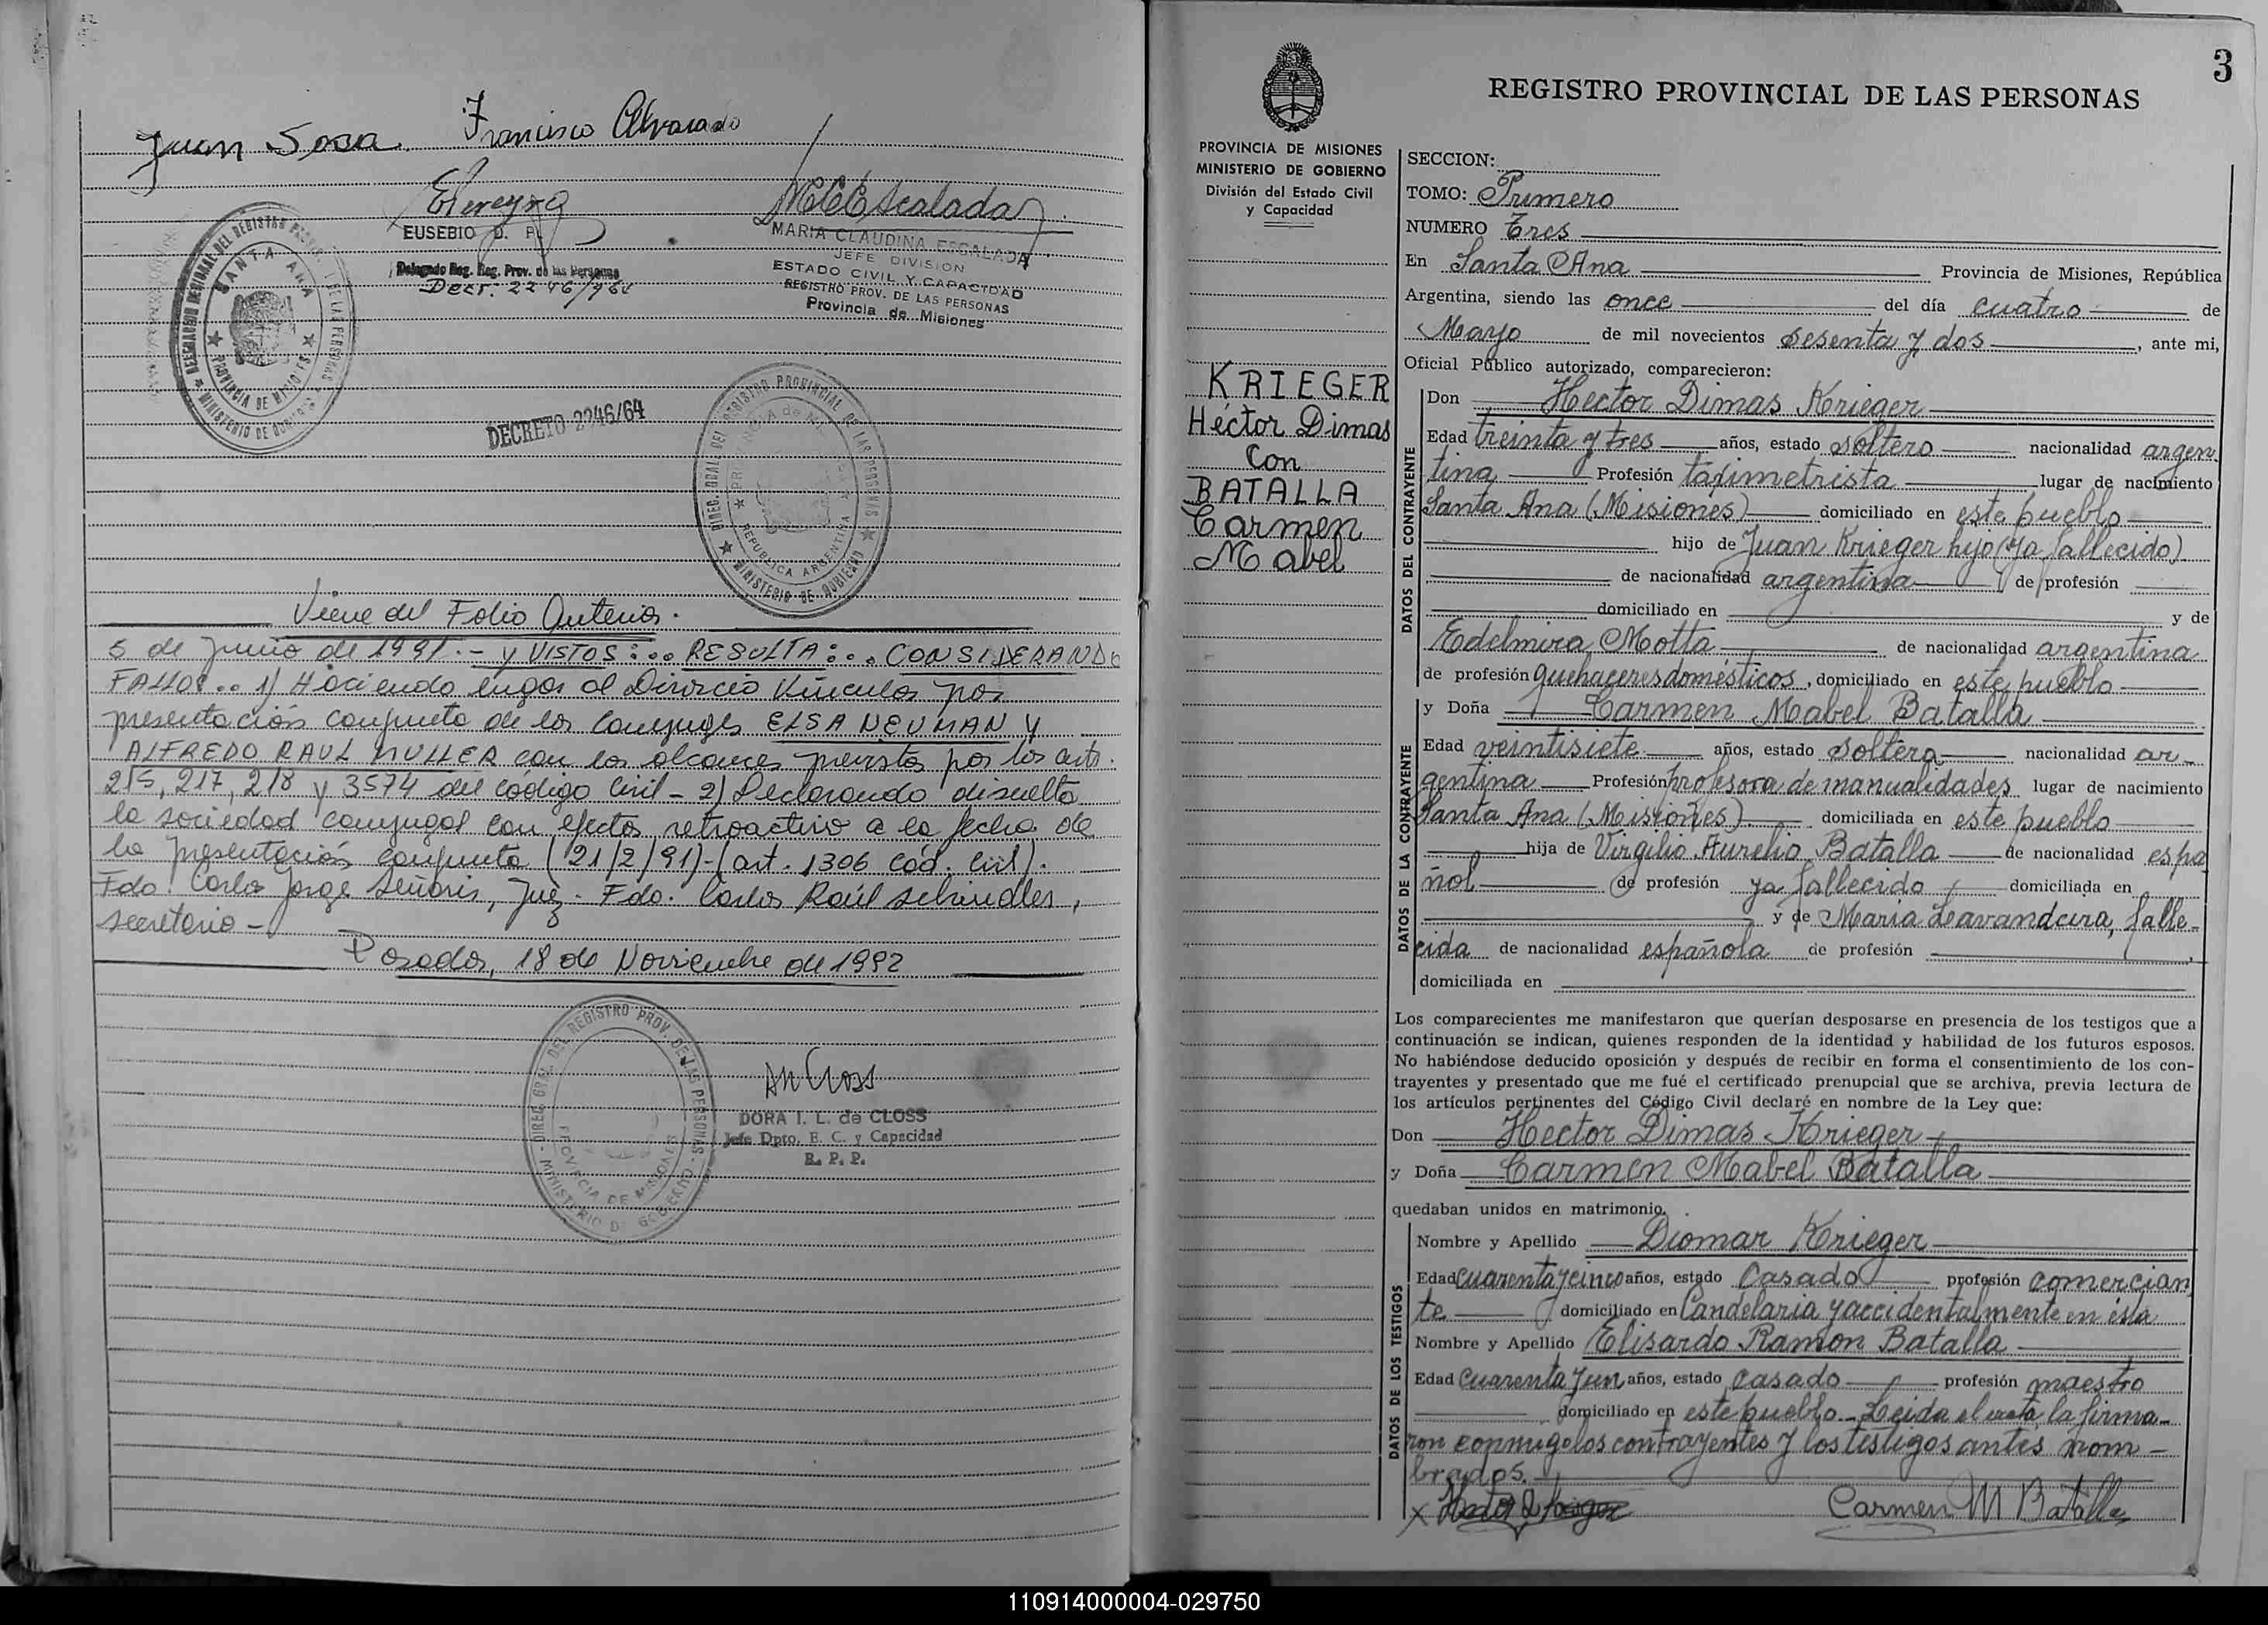 Juan Sosa Francisco Alvarado
EPereyra MCEscalada
EUSEBIO D. P. MARIA CLAUDINA ESCALADA
JEFE DIVISION
Delegado Reg. Reg. Prov. de las Personas ESTADO CIVIL Y CAPACIDAD
Decr. 2246/964 REGISTRO PROV. DE LAS PERSONAS
Provincia de Misiones
DELEGACION REGIONAL DEL REGISTRO PROV. DE LAS PERSONAS
SANTA ANA
PROVINCIA DE MISIONES
MINISTERIO DE GOBIERNO
DECRETO 2246/64
DIREC. GRAL. DEL REGISTRO PROVINCIAL DE LAS PERSONAS
PROVINCIA de MISIONES
REPUBLICA ARGENTINA
MINISTERIO DE GOBIERNO
Viene del Folio Anterior.
5 de Junio de 1991.- Y VISTOS:... RESULTA:... CONSIDERANDO
FALLO:... 1) Haciendo lugar al Divorcio Vincular por
presentación conjunta de los Conyuges ELSA NEUMAN Y
ALFREDO RAUL MULLER con los alcances previstos por los arts.
215, 217, 218 y 3574 del Código Civil - 2) Declarando disuelta
la sociedad conyugal con efecto retroactivo a la fecha de
la presentación conjunta (21/2/91)-(art. 1306 Cód. Civil).
Fdo. Carlos Jorge Señoris, Juez. Fdo. Carlos Raúl Schindler,
secretario -
Posadas, 18 de Noviembre de 1992
DIREC. GRAL. DEL REGISTRO PROV. DE LAS PERSONAS
PROVINCIA DE MISIONES
MINISTERIO DE GOBIERNO
DORA I. L. de CLOSS
Jefe Dpto. E. C. y Capacidad
R. P. P.
3
REGISTRO PROVINCIAL DE LAS PERSONAS
PROVINCIA DE MISIONES
MINISTERIO DE GOBIERNO
División del Estado Civil
y Capacidad
KRIEGER
Héctor Dimas
Con
BATALLA
Carmen
Mabel
SECCION:
TOMO: Primero
NUMERO Tres
En Santa Ana Provincia de Misiones, República
Argentina, siendo las once del día cuatro de
Mayo de mil novecientos sesenta y dos, ante mi,
Oficial Público autorizado, comparecieron:
DATOS DEL CONTRAYENTE
Don Hector Dimas Krieger
Edad treinta y tres años, estado soltero nacionalidad argen
tina Profesión taximetrista lugar de nacimiento
Santa Ana (Misiones) domiciliado en este pueblo
hijo de Juan Krieger hijo (ya fallecido)
de nacionalidad argentina de profesión
domiciliado en y de
Edelmira Motta de nacionalidad argentina
de profesión quehaceres domésticos, domiciliado en este pueblo
DATOS DE LA CONTRAYENTE
y Doña Carmen Mabel Batalla
Edad veintisiete años, estado soltera nacionalidad ar-
gentina Profesión profesora de manualidades lugar de nacimiento
Santa Ana (Misiones) domiciliada en este pueblo
hija de Virgilio Aurelio Batalla de nacionalidad espa
ñol de profesión ya fallecido domiciliada en
y de Maria Lavandeira, falle-
cida de nacionalidad española de profesión
domiciliada en
Los comparecientes me manifestaron que querían desposarse en presencia de los testigos que a
continuación se indican, quienes responden de la identidad y habilidad de los futuros esposos.
No habiéndose deducido oposición y después de recibir en forma el consentimiento de los con-
trayentes y presentado que me fué el certificado prenupcial que se archiva, previa lectura de
los artículos pertinentes del Código Civil declaré en nombre de la Ley que:
Don Hector Dimas Krieger
y Doña Carmen Mabel Batalla
quedaban unidos en matrimonio.
DATOS DE LOS TESTIGOS
Nombre y Apellido Diomar Krieger
Edad cuarenta y cinco años, estado Casado profesión comercian
te domiciliado en Candelaria y accidentalmente en esta
Nombre y Apellido Elisardo Ramon Batalla
Edad cuarenta y un años, estado casado profesión maestro
domiciliado en este pueblo.- Leida el acta, la firma-
ron conmigo los contrayentes y los testigos antes nom-
brados.
x Hector D Krieger Carmen M Batalla
110914000004-029750